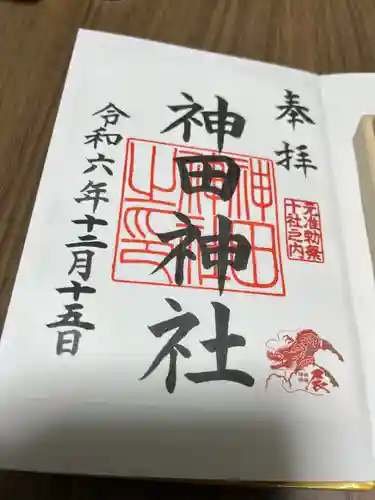 奉拝
元准勅祭
十社之内
神田神社
神田
神社
之印
令和六年十二月十五日